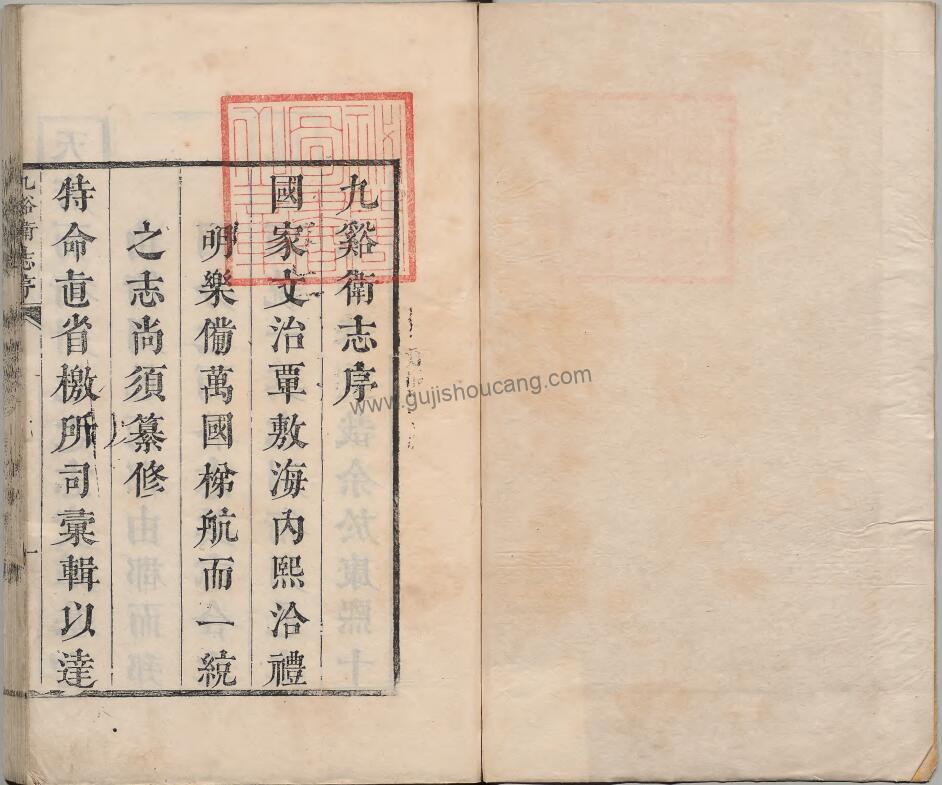 九谿衛志序
國家文治覃敷海內熙洽禮
明樂備萬國梯航而一統
之志尚須纂修
特命直省檄所司彙輯以達
九谿衛志序
www.gujishoucang.com